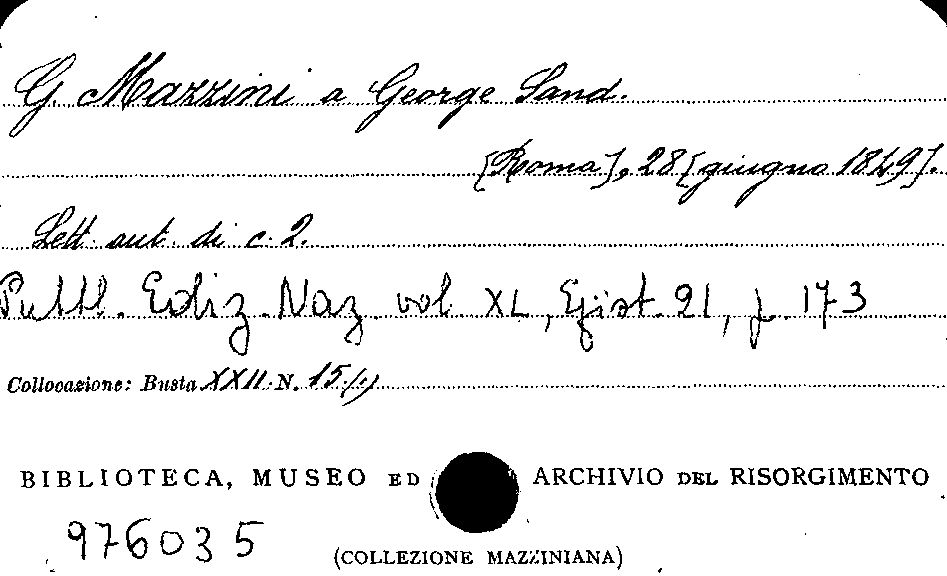 G. Mazzini a George Sand.
[Roma], 28 [giugno 1849].
Lett. aut. di c. 2.
Pubbl. Ediz. Naz. vol. XL, Epist. 21, p. 173
Collocazione: Busta XXII N. 15/1)
BIBLIOTECA, MUSEO ED ARCHIVIO DEL RISORGIMENTO
976035
(COLLEZIONE MAZZINIANA)